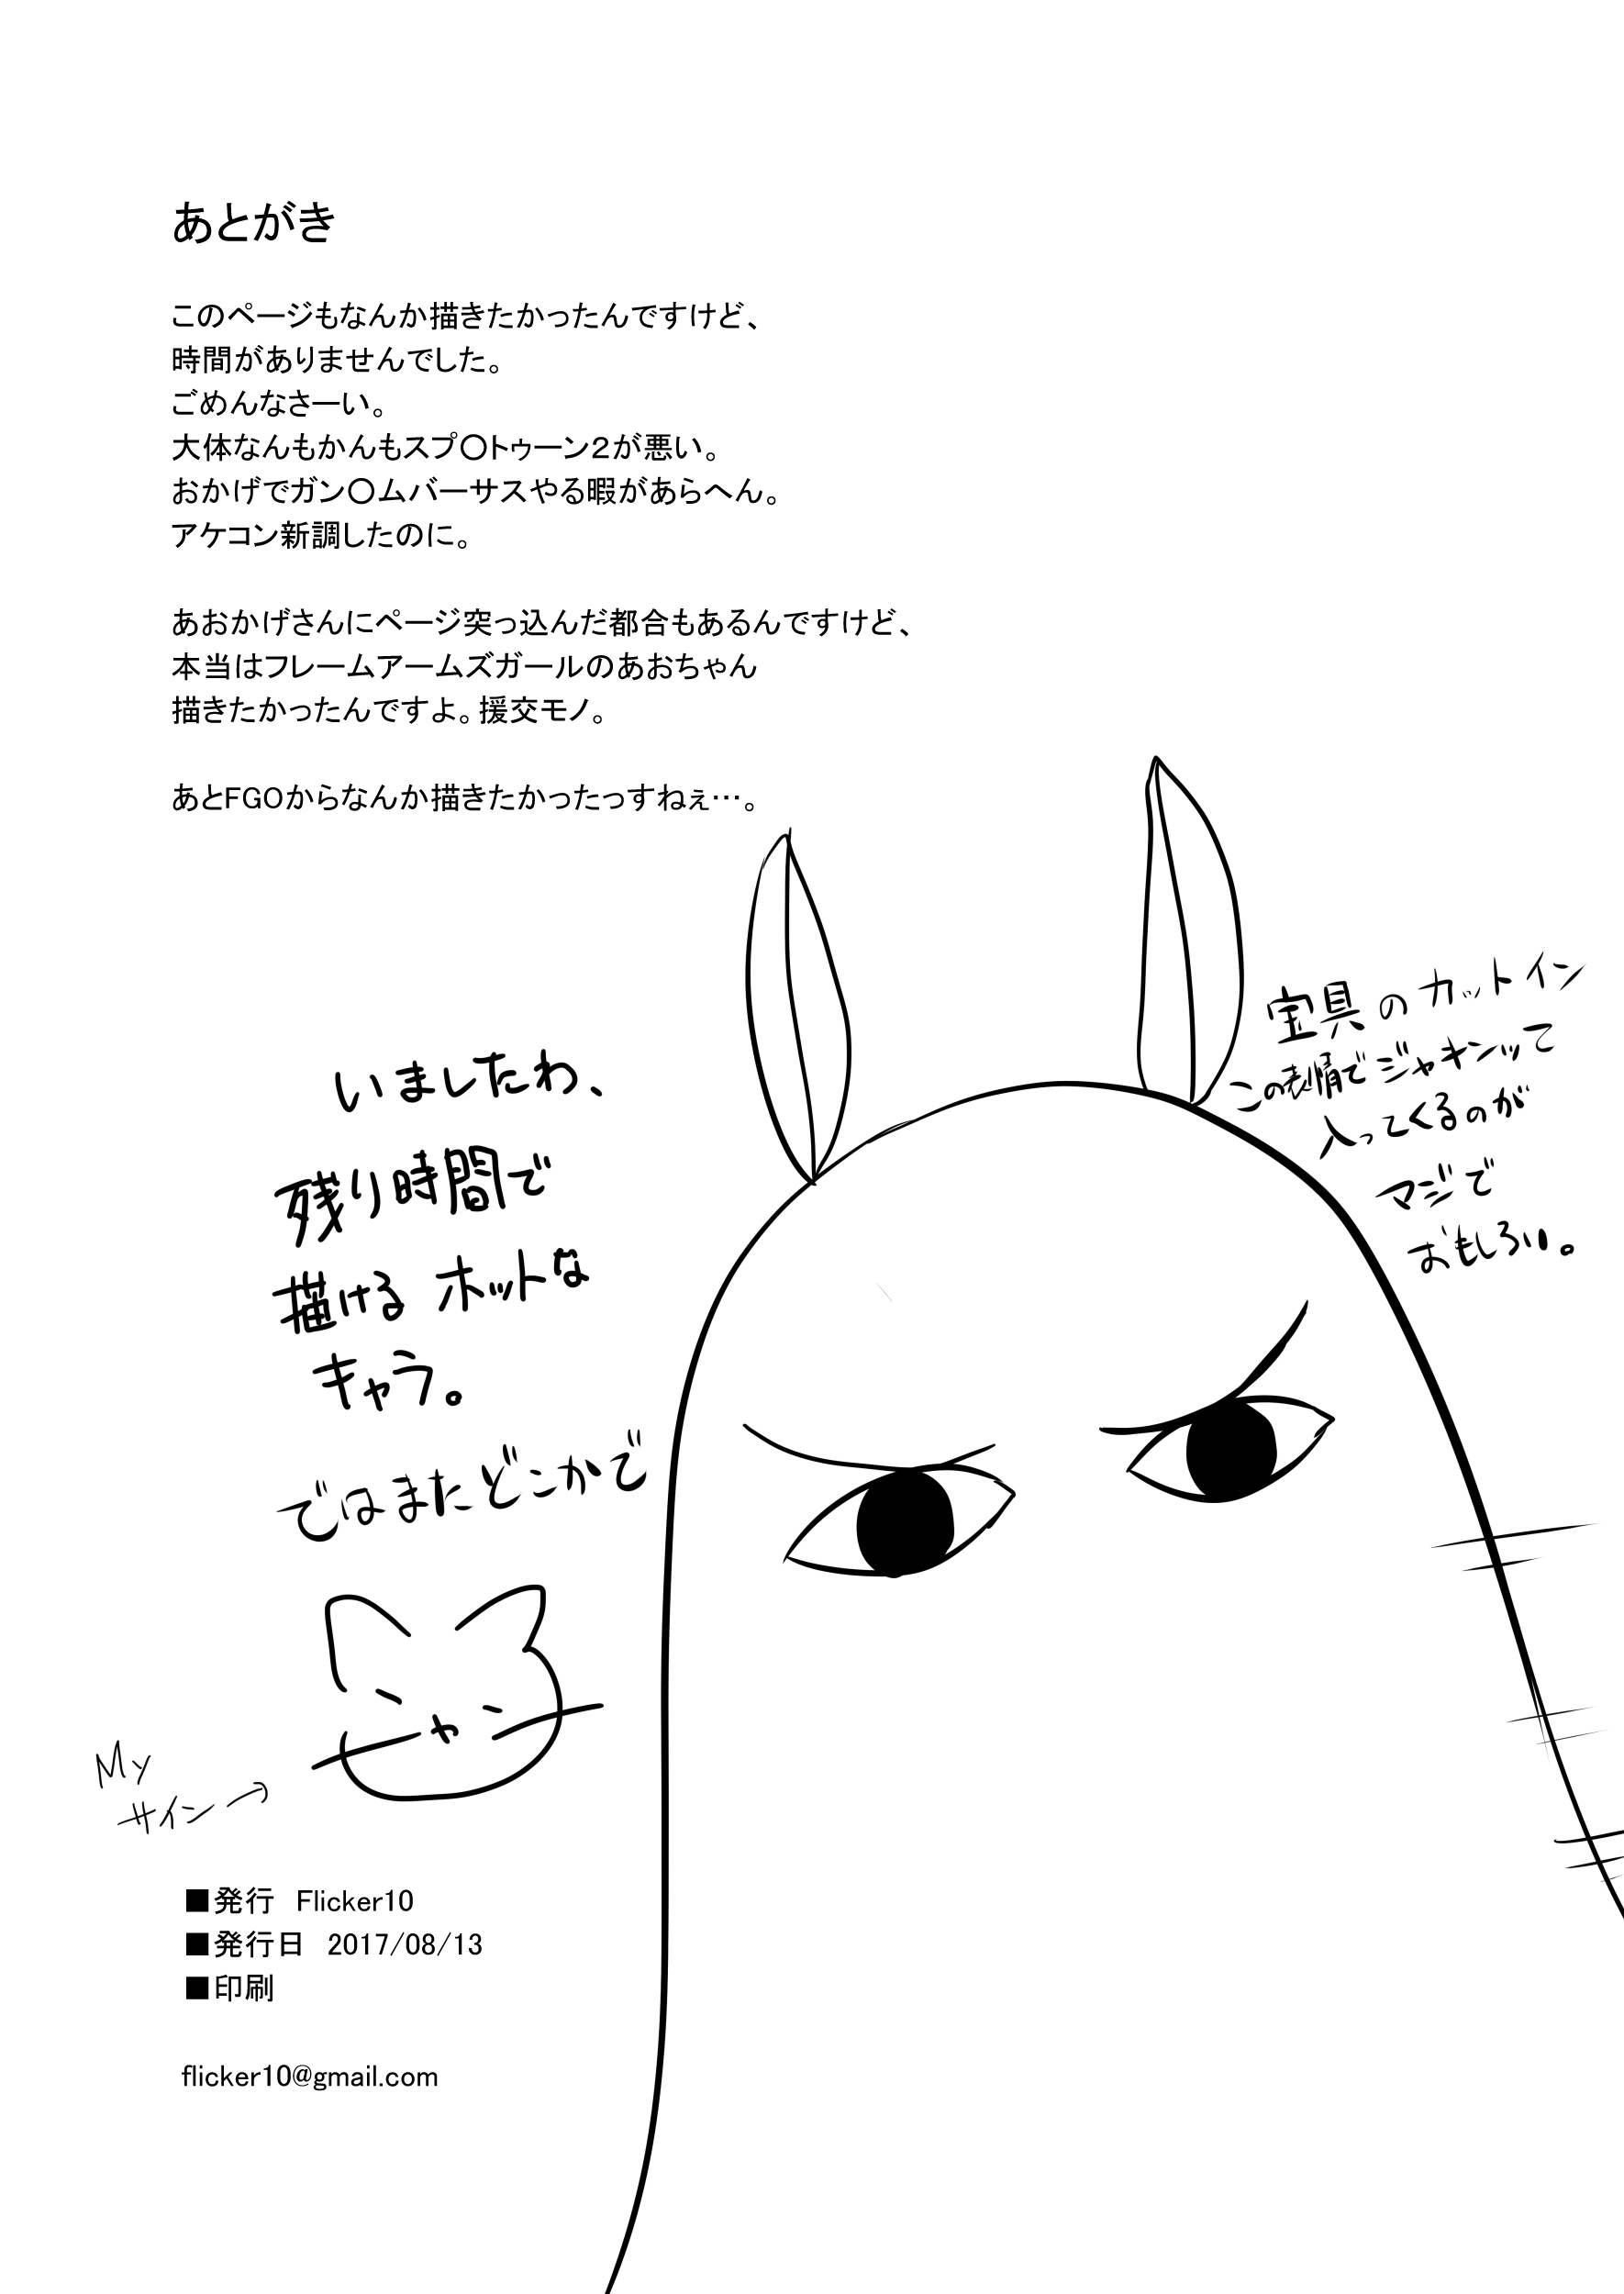 あとがき
このページもなんか描きたかったんですけど、
時間がありませんでした。
ごめんなさーい。
大体なんもかんもスプ〇トゥーン2が悪い。
おかげでガン〇ムバーサスやる暇があらへん。
アケコン新調したのに。
あおかげさんにページ突っ込んだ都合もあるんですけど、
本当はフレームアームズガールのあおちゃん
描きたかったんですよ。援交モノ。
あとFGOからなんか描きたかったっすねぇ…。
宝具のカットイン
この表情でジャキンッて
入ってくるのが
マジで
おもしろい。
いましたわ、
残り時間で
描けるホットな
キャラ。
ではまたどこかで
ニャン
My
サイン→
■発行 Flicker10
■発行日 2017/08/13
■印刷
flicker10@gmail.com